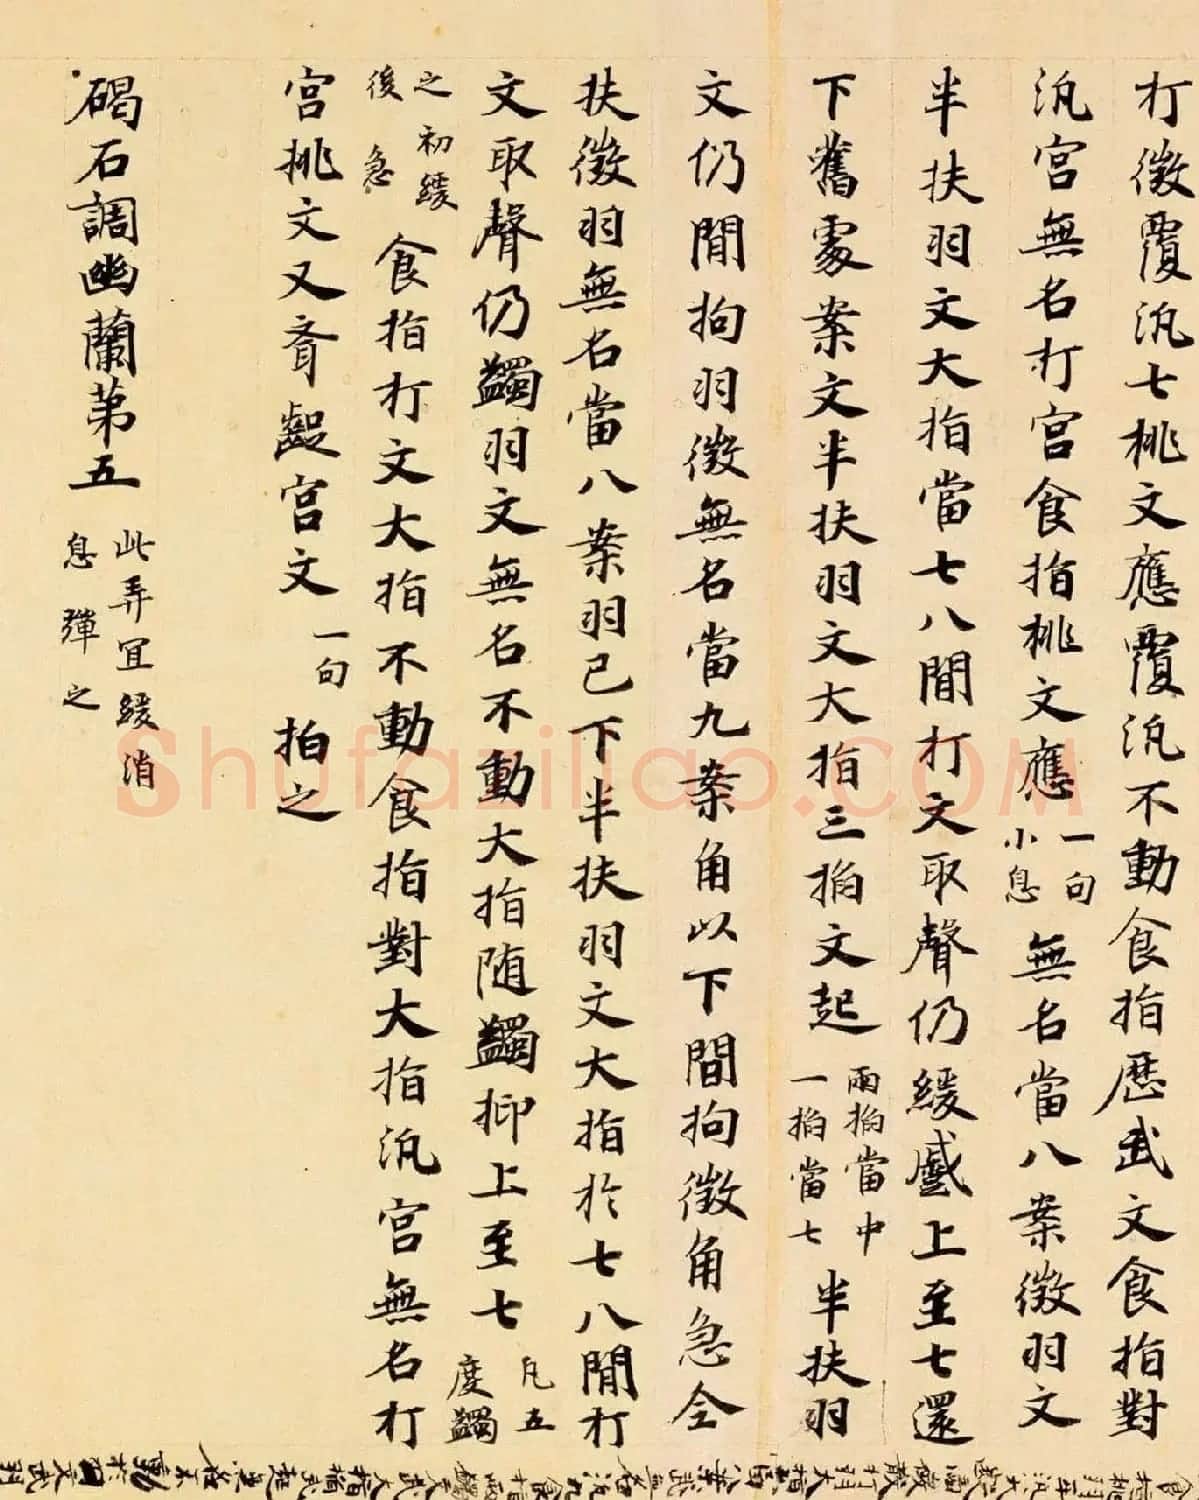 打徵覆汎七桃文應覆汎不動食指歷武文食指對
汎宫無名打宫食指桃文應
一句
小息
無名當八案徵羽文
半扶羽文大指當七八間打文取聲仍緩上至七還
下舊處案文半扶羽文大指三拍文起
兩拍當中
一拍當七
半扶羽
文仍間拘羽徵無名當九案角以下間拘徵角急全
扶徵羽無名當八案羽已下半扶羽文大指於七八間打
文取聲仍蠲羽文無名不動大指随蠲抑上至七
凡五
度蠲
之初緩
後急
食指打文大指不動食指對大指汎宫無名打
宫桃文又齊齪宫文
一句
拍之
碣石調幽蘭第五
此弄宜緩消
息彈之
Shufaziliao.COM